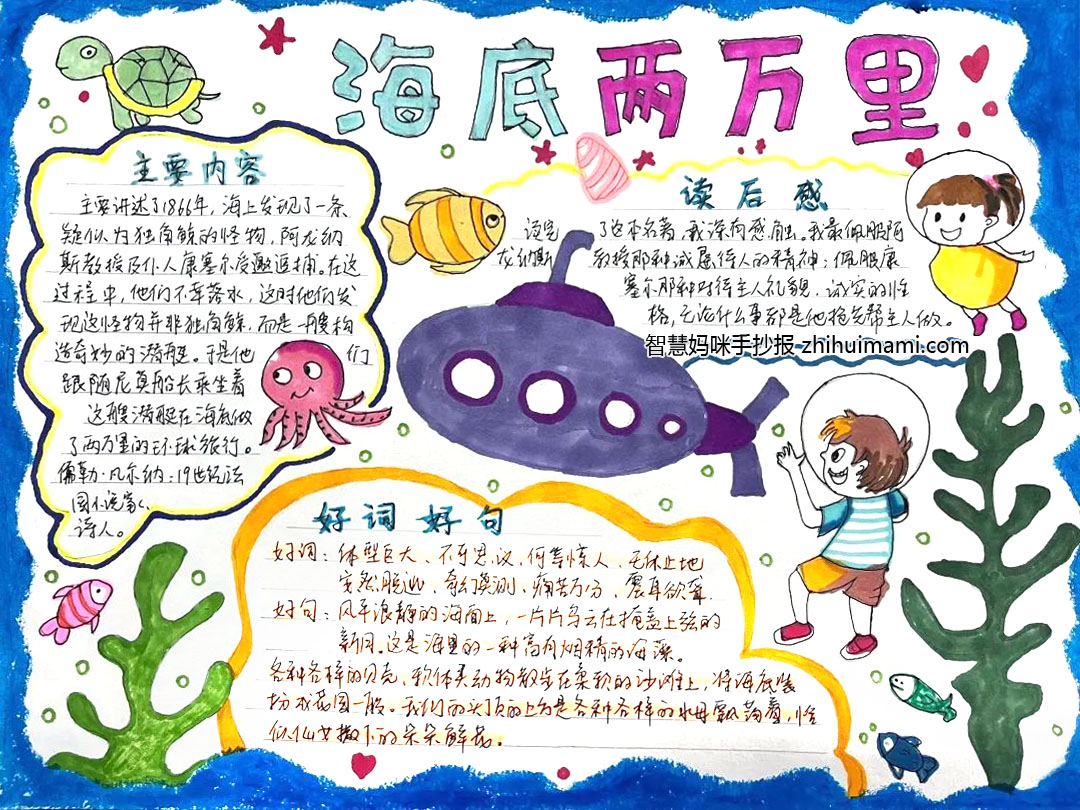 海底两万里
主要内容
主要讲述了1866年，海上发现了一条
疑似为独角鲸的怪物，阿龙纳
斯教授及仆人康塞尔受邀追捕。在这
过程中，他们不幸落水，这时他们发
现这怪物并非独角鲸，而是一艘构
造奇妙的潜艇。于是他们
跟随尼莫船长乘坐着
这艘潜艇在海底做
了两万里的环球旅行。
儒勒·凡尔纳·19世纪法
国小说家、
诗人。
读后感
读完了这本名著，我深有感触。我最佩服阿
龙纳斯教授那种诚恳待人的精神；佩服康
塞尔那种对待主人礼貌、诚实的性
格，无论什么事都是他抢先帮主人做。
智慧妈咪手抄报-zhihuimami.com
好词好句
好词：体型巨大、不可思议、何等惊人、无休止地
突然脱逃、奇幻莫测、痛苦万分、震耳欲聋
好句：风平浪静的海面上，一片片乌云在掩盖上弦的
新月。这是海里的一种富有烟精的海藻。
各种各样的贝壳、软体类动物散步在柔软的沙滩上，将海底装
扮成花园一般。我们的头顶的上方是各种各样的水母飘荡着，恰
似仙女撒下的朵朵鲜花。